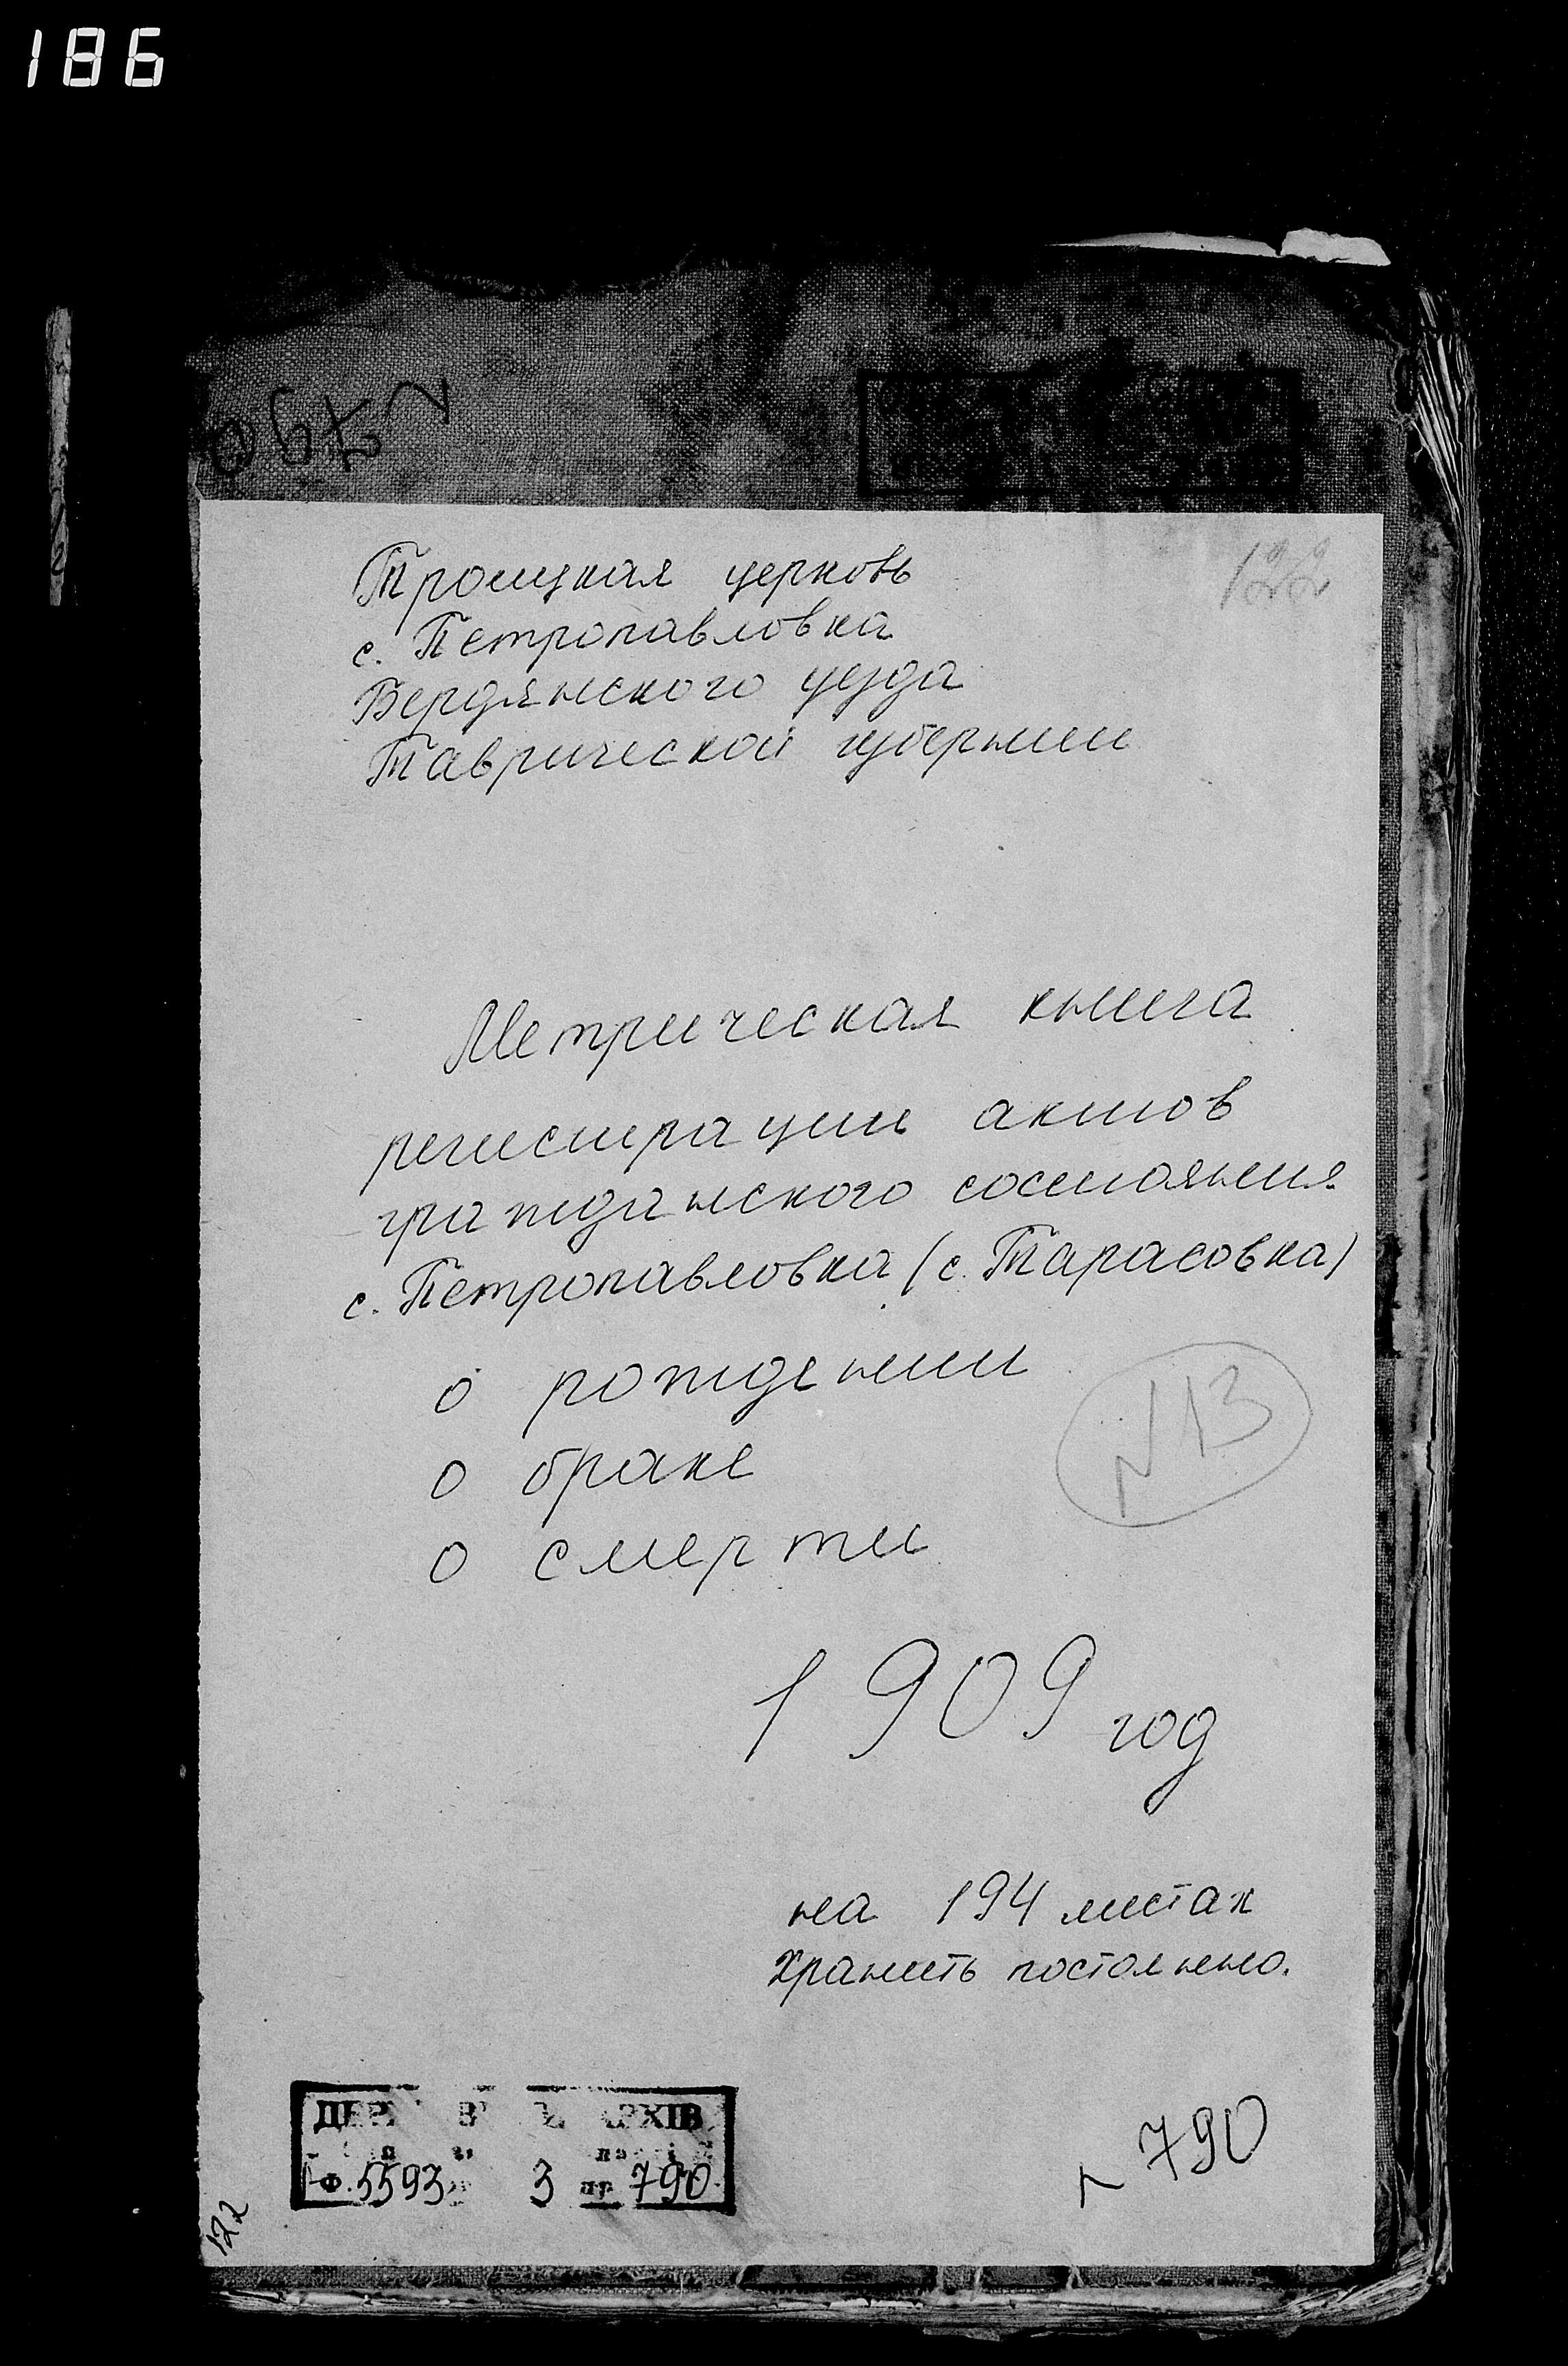 186
122
Троицкая церковь
с. Петропавловка
Бердянского уезда
Таврической губернии
Метрическая книга
регистрации актов
гражданского состояния
с. Петропавловка (с. Тарасовка)
о рождении
о браке
о смерти
N 13
1909 год
на 194 листах
Хранить постоянно.
АРХІВ
Ф. 5593 3 790
790
122